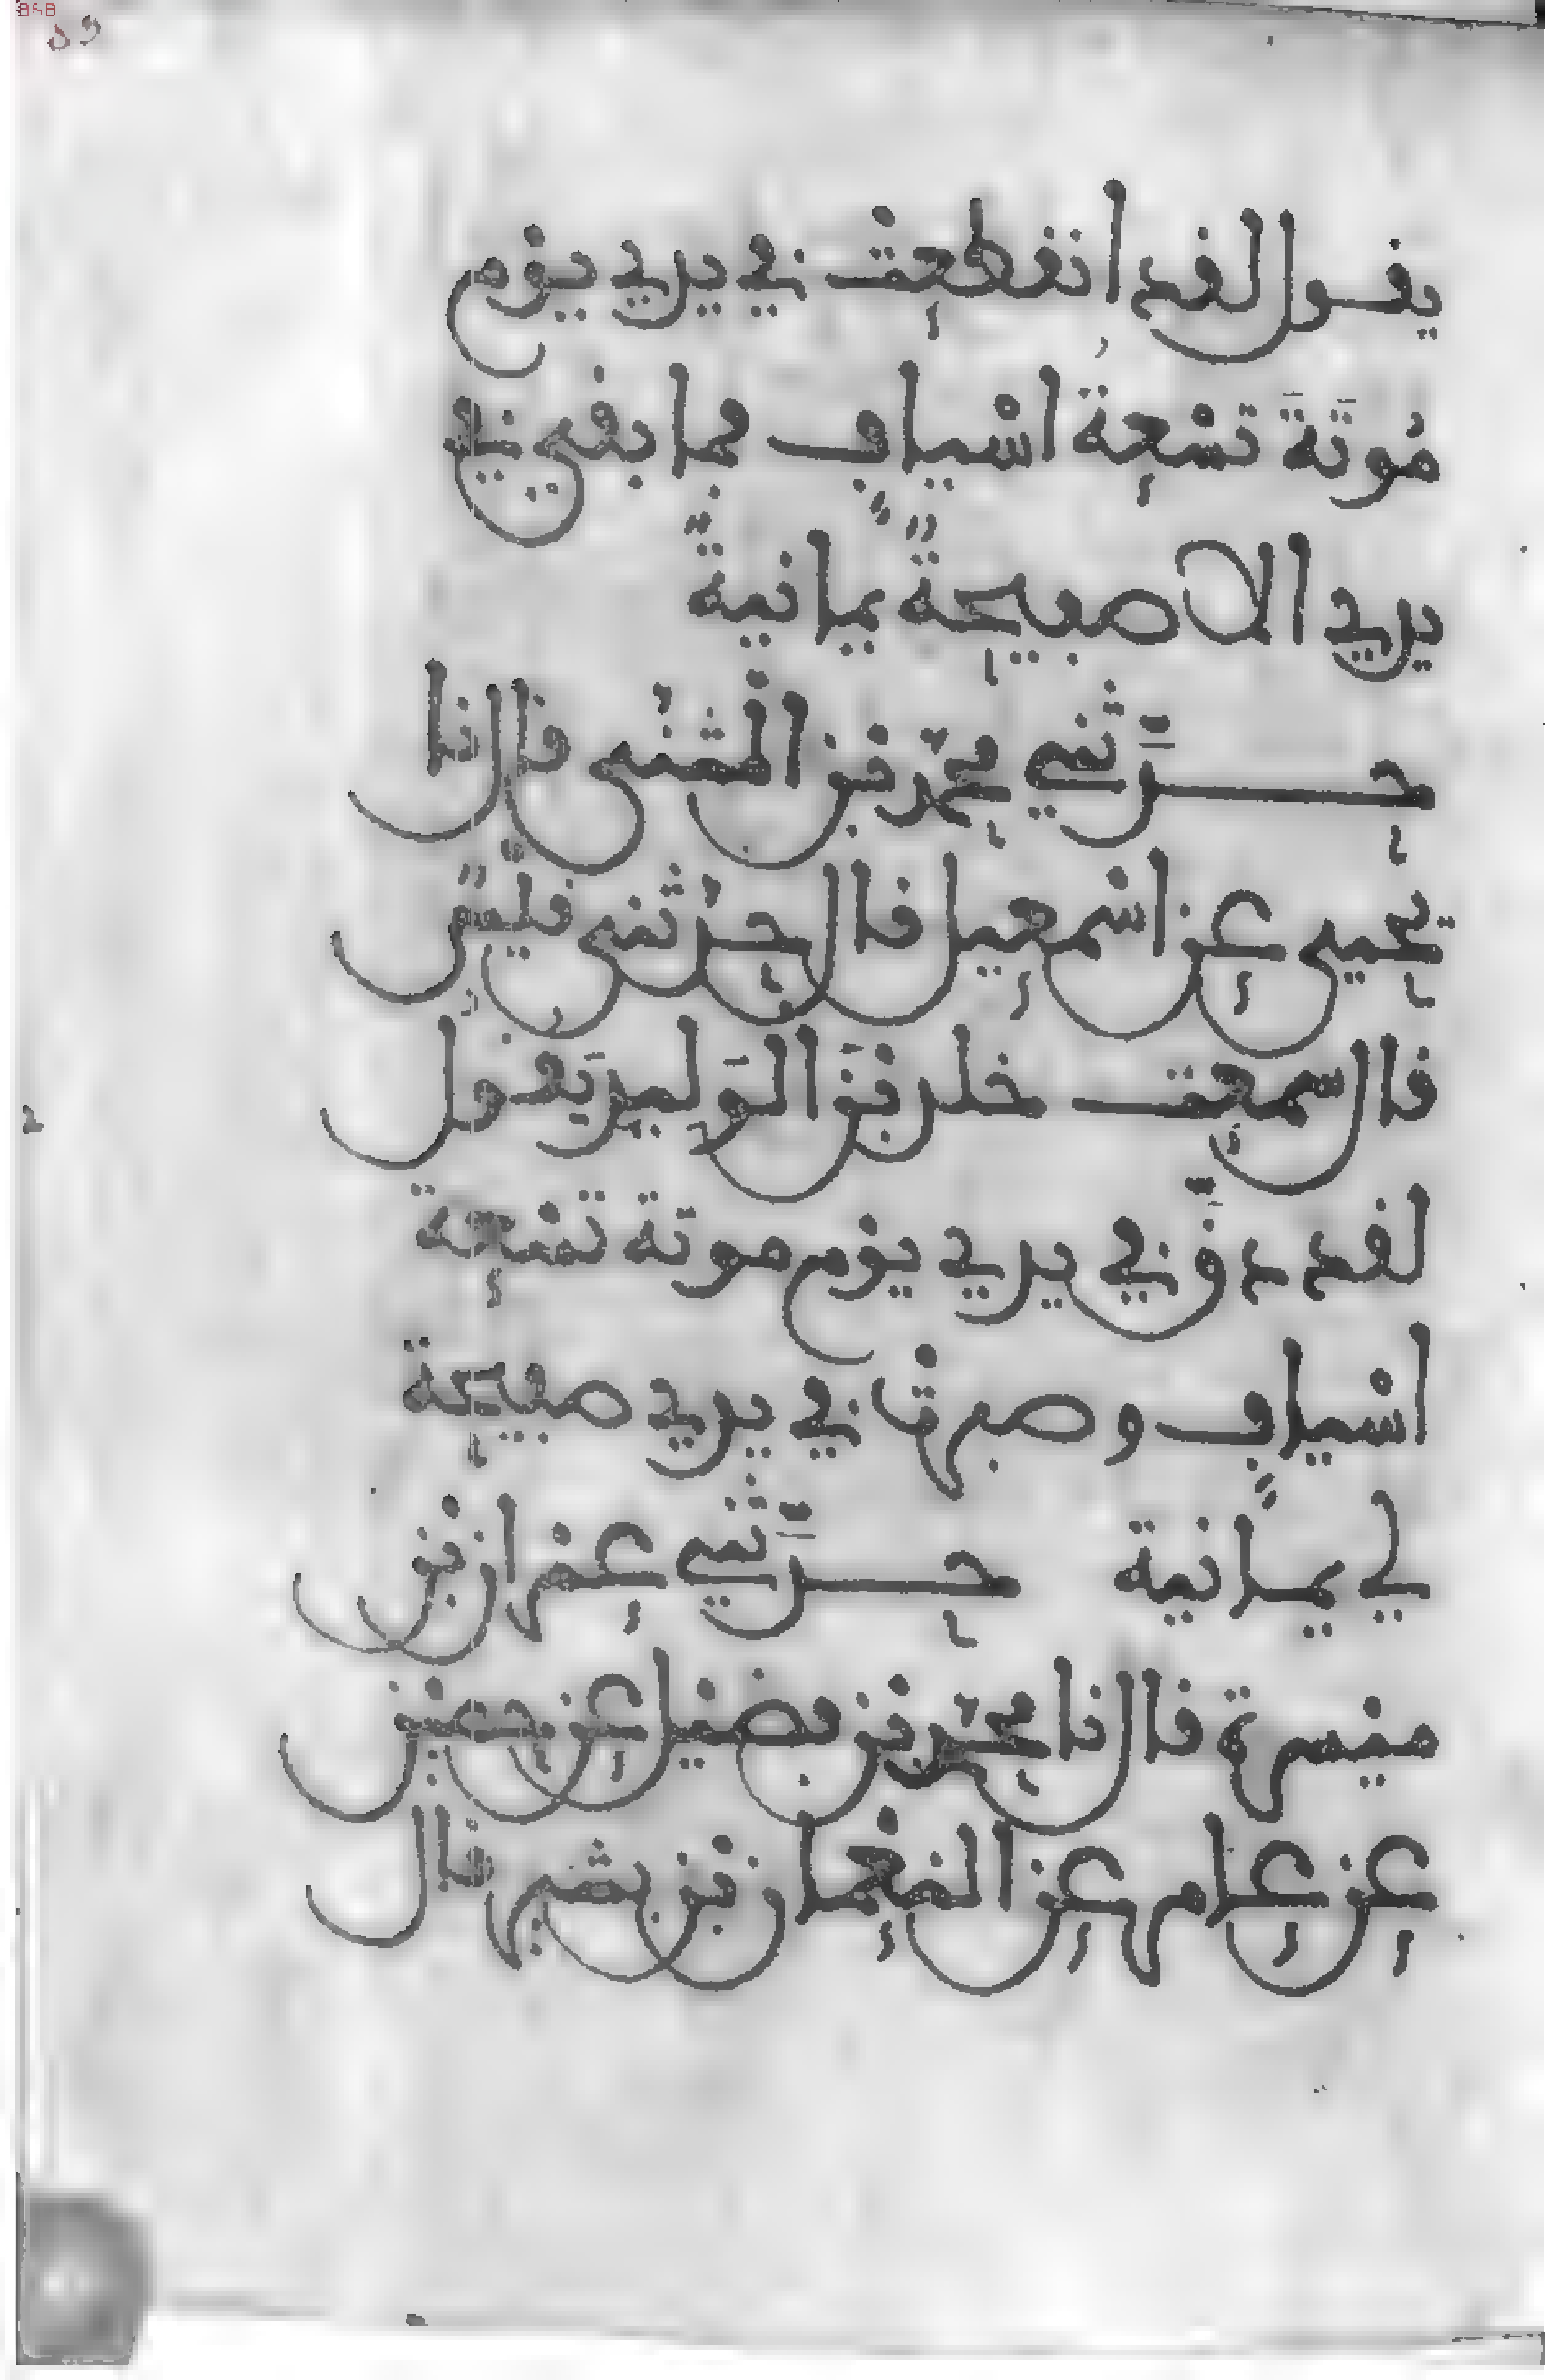 يقول لقد انقطعت في يدي يوم
مُوتَةَ تسْعةُ اسْيافٍ فما بقي في
يدي الا صفيحةٌ يمانيةٌ
حدَّثني محمد بن المثنى قال نا
يحيى عن اسمعيل قال حدثني قيسٌ
قال سمعت خلد بنَ الوَليد يَقول
لقد دقَّ في يدي يوم موتة تسْعة
اسْيافٍ وصبرتْ في يدي صفيحة
لي يمانية حدَّثني عمران بن
ميسرة قال نا محمد بن فضيل عن حصين
عن عامر عن النعمان بن بشير قال